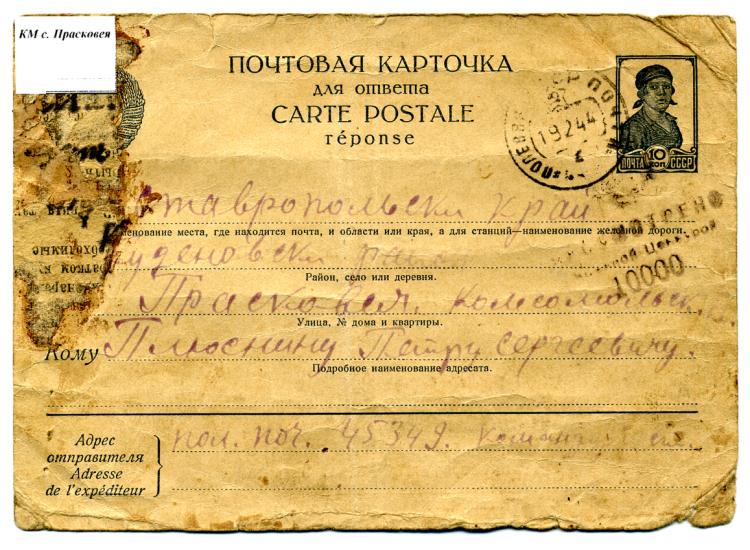 КМ с. Прасковея
ПОЧТОВАЯ КАРТОЧКА
для ответа
CARTE POSTALE
réponse
ПОЛЕВАЯ ПОЧТА
19 2 44
ПОЧТА 10 КОП СССР
Ставропольски край
менование места, где находится почта, и области или края, а для станций—наименование железной дороги.
ПРОСМОТРЕНО
Военной Цензурой
10000
уденовски район
Район, село или деревня.
Прасковея. комсомольск
Улица, № дома и квартиры.
Кому Плюснину Петру Сергеевичу.
Подробное наименование адресата.
Адрес отправителя
Adresse de l'expéditeur
пол. поч. 45349.